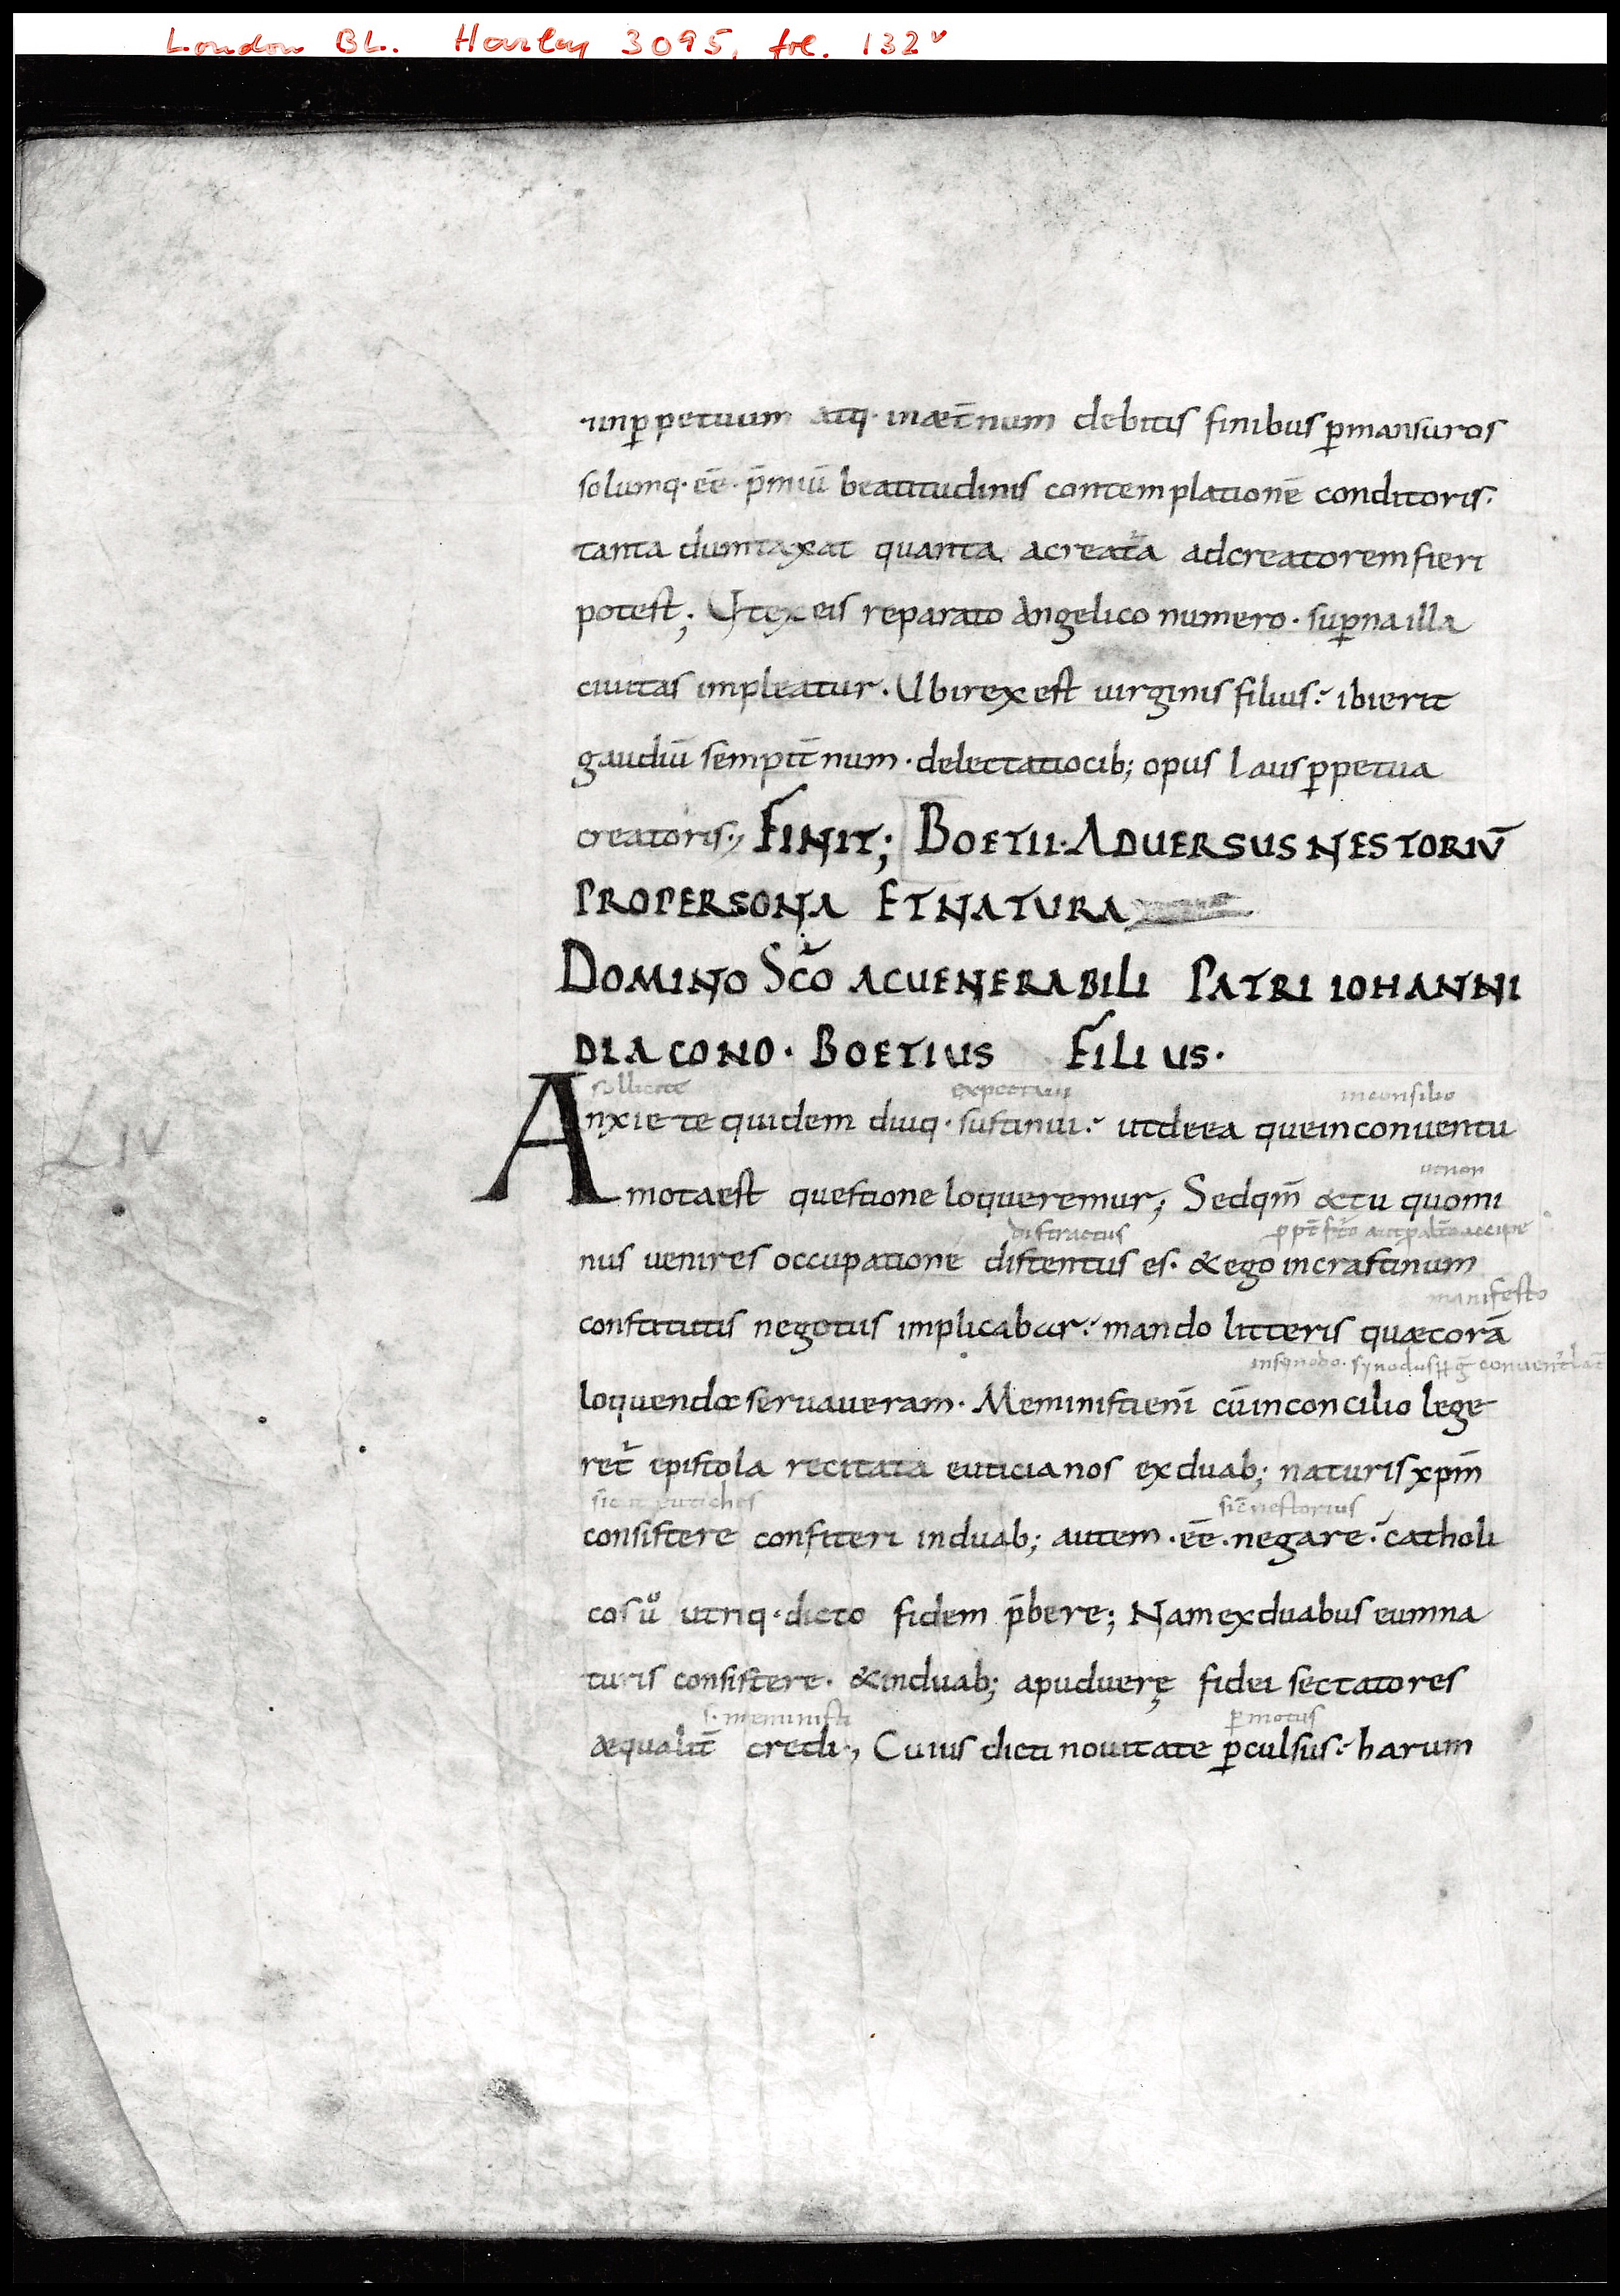 London BL. Harley 3095, fol. 132v
·inp̲petuum atq· inæt̄num debitis finibus p̲mansuros
solumq· ēē· p̄miū beatitudinis contemplationē conditoris·
tanta dumtaxat quanta acreat᷑a adcreatorem fieri
potest; Utex eis reparato Angelico numero· sup̲na illa
ciuitas impleatur· Ubi rex est uirginis filius· ibi erit
gaudiū sempit̄num· delectatio cib; opus laus p̲petua
creatoris·, FINIT; BOETII· ADUERSUS NESTORIŪ
PROPERSONA ETNATURA
DOMINO SC̄O ACUENERABILI PATRI IOHANNI
DIACONO· BOETIUS FILIUS·
sollicite expectaui inconsilio
Anxie te quidem diuq· sustinui· utdeea queinconuentu
utnon
motaest questione loqueremur; Sedqm̄ &tu quomi
distractus accipe
nus uenires occupatione distentus es· & ego incrastinum
manifesto
constitutis negotiis implicabar· mando litteris quæcorā
insynodo· synodus
loquendæ seruaueram· Meministienī cūinconcilio lege
ret᷑ epistola recitata euticianos exduab; naturis xpm̄
sicut eutiches sic̄ nestorius
consistere confiteri induab; autem· ēē· negare· catholi
cos uͦ utriq· dicto fidem p̄bere; Nam exduabus eumna
turis consistere· &induab; apuduerę fidei sectatores
s· meministi p̲motus
æqualit̄ credi·, Cuius dicti nouitate p̲culsus· harum
LIV